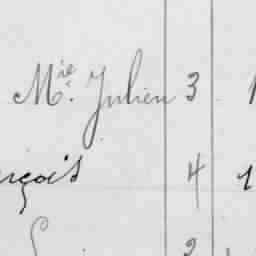 Mie. Julien 3
nçois 4 1
2